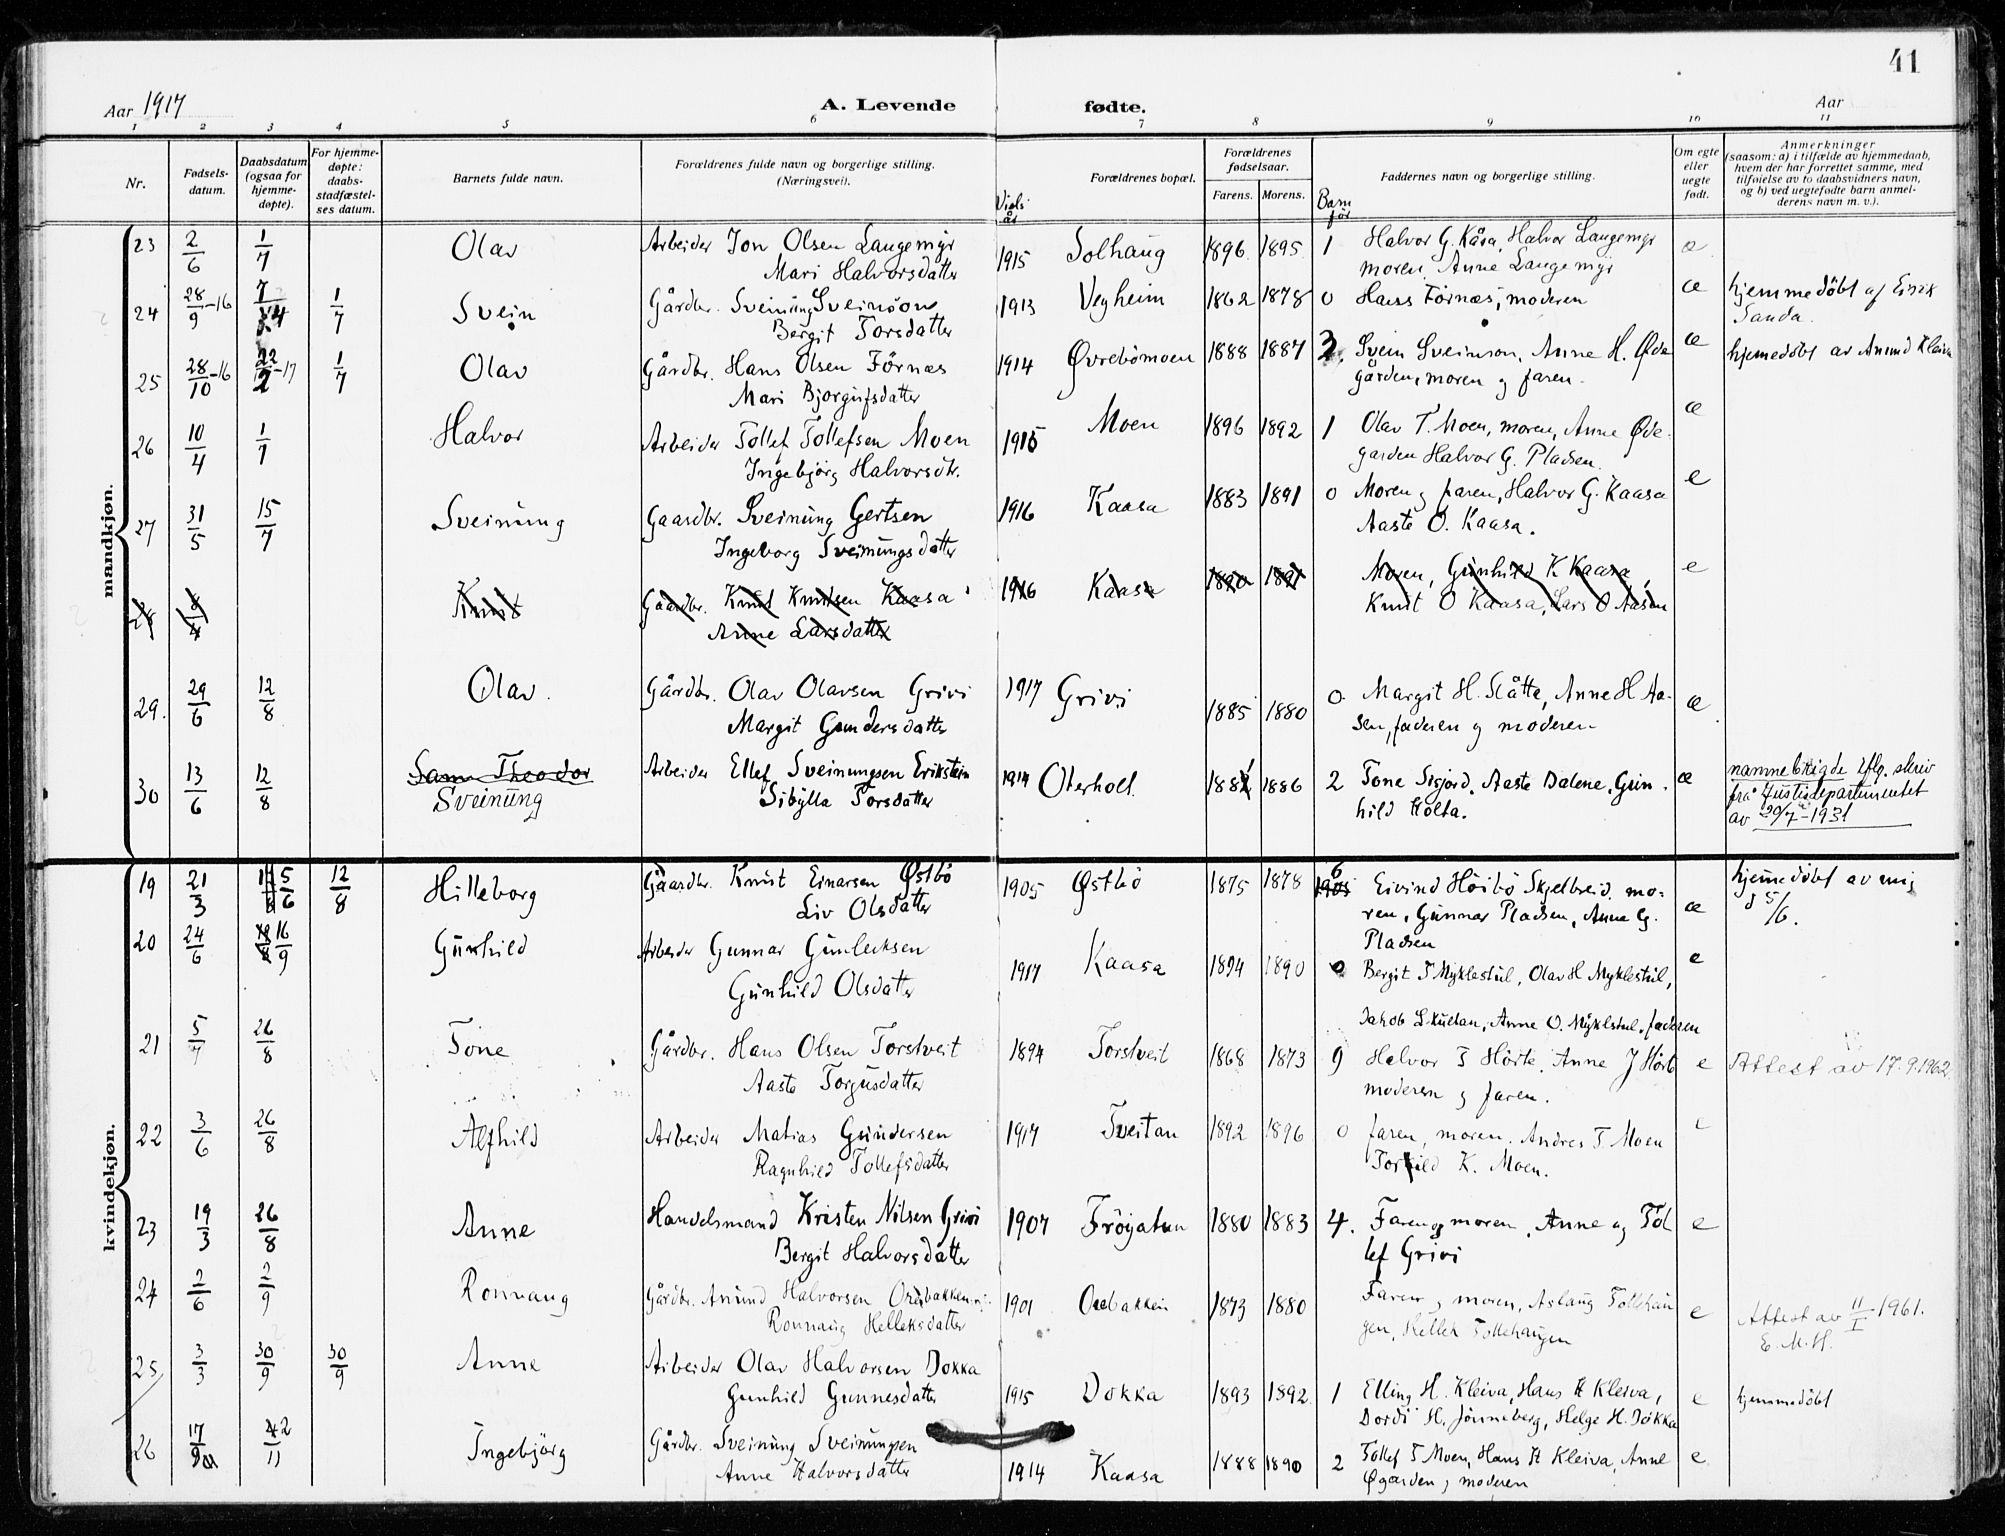 41
Aar 1917 A. Levende fødte. Aar
1 2 3 4 5 6 7 8 9 10 11
Nr. Fødsels-datum. Daabsdatum (ogsaa for hjemme-døpte). For hjemme-døpte: daabs-stadfæstel-ses datum. Barnets fulde navn. Forældrenes fulde navn og borgerlige stilling. (Næringsvei). Viels år Forældrenes bopæl. Forældrenes fødselsaar. Farens. Morens. Barn før Faddernes navn og borgerlige stilling. Om egte eller uegte født. Anmerkninger (saasom: a) i tilfælde av hjemmedaab, hvem der har forrettet samme, med tilføielse av to daabsvidners navn, og b) ved uegtefødte barn anmel-derens navn m. v.).
mandkjøn.
23 2/6 1/7 Olav Arbeider Jon Olsen Langemyr 1915 Solhaug 1896 1895 1 Halvor G. Kåsa, Halvor Langemyr æ
Mari Halvorsdatter moren, Anne Langemyr
24 28/9-16 1/7 Svein Gårdbr. Sveinung Sveinson 1913 Vegheim 1862 1878 0 Hans Førnæs, moderen æ hjemmedöbt af Eirik
Bergit Torsdatter Sanda.
25 28/10-16 22/2-17 1/7 Olav Gårdbr. Hans Olsen Förnæs 1914 Øvrebömoen 1888 1887 3. Svein Sveinson, Anne H. Øde æ hjemedöbt av Anund Kleiva
Mari Bjorgufsdatter gården, moren og faren.
26 10/4 1/7 Halvor Arbeider Tollef Tollefsen Moen 1915 Moen 1896 1892 1 Olav T. Moen, moren, Anne Øde- æ
Ingebjörg Halvorsdtr. garden Halvor G. Pladsen.
27 31/5 15/7 Sveinung Gaardbr. Sveinung Gertsen 1916 Kaasa 1883 1891 0 Moren og faren, Halvor G. Kaasa e
Ingeborg Sveinungsdatter Aaste O. Kaasa.
28 /4 Knut Gaardbr. Knut Knutsen Kaasa 1916 Kaasa 1890 1891 Moren, Gunhild K Kaasa, e
Anne Larsdatter Knut O Kaasa, Lars O Aasen
29. 29/6 12/8 Olav. Gårdbr. Olav Olavsen Grivi 1917 Grivi 1885 1880 0 Margit H. Slåtte, Anne H Aa- æ
Margit Gundersdatter sen, faderen og moderen
30 13/6 12/8 Sam Theodor Arbeider Ellef Sveinungsen Erikstein 1914 Oterholt 1881 1886 2 Tone Sisjord, Aaste Dalene, Gun- æ namnebrigde iflg. skriv
Sveinung Sibylla Torsdatter hild Holta. frå Justisdepartementet
av 20/7-1931
kvindekjøn.
19 21/3 5/6 12/8 Hilleborg Gaardbr. Knut Einarsen Østbö 1905 Østbö 1875 1878 6 Eivind Höibö Skjelbreid, mo- æ hjemedöbt av mig
Liv Olsdatter 1905 ren, Gunnar Pladsen, Anne G. d 5/6.
Pladsen
20 24/6 16/9 Gunhild Arbeider Gunnar Gunleiksen 1917 Kaasa 1894 1890 0 Bergit T Myklestul, Olav H Myklestul, e
Gunhild Olsdatter Jakob Skultan, Anne O. Myklstul, faderen
21 5/7 26/8 Tone Gårdbr. Hans Olsen Torstveit 1894 Torstveit 1868 1873 9 Halvor T Hörte, Anne J Hörte e Attest av 17.9.1962
Aaste Torjusdatter moderen og faren.
22 3/6 26/8 Alfhild Arbeider Matias Gundersen 1917 Tveitan 1892 1896 0 faren, moren, Andres T. Moen e
Ragnhild Tollefsdatter Torhild K. Moen.
23 19/3 26/8 Anne Handelsmand Kristen Nilsen Grivi 1907 Fröyatun 1880 1883 4. Faren og moren, Anne og Tol e
Bergit Halvorsdatter lef Grivi
24 2/6 2/9 Ronnaug Gårdbr. Anund Halvorsen Orebakken 1901 Orebakken 1873 1880 Faren og moren, Aslaug Tollehau e Attest av 11/I-1961.
Ronnaug Helleksdatter gen, Hellek Tollehaugen E. M. H.
25 3/3 30/9 30/9 Anne Arbeider Olav Halvorsen Dokka 1915 Dokka 1893 1892 1 Elling H. Kleiva, Hans H Kleiva, e hjemmedöbt
Gunhild Gunnesdatter Dordi H. Jönneberg, Helge H. Dokka
26 17/9 2/11 Ingebjörg Gårdbr. Sveinung Sveinungsen 1914 Kaasa 1888 1890 2 Tollef T Moen, Hans H Kleiva, Anne e
Anne Halvorsdatter Øgarden, moderen